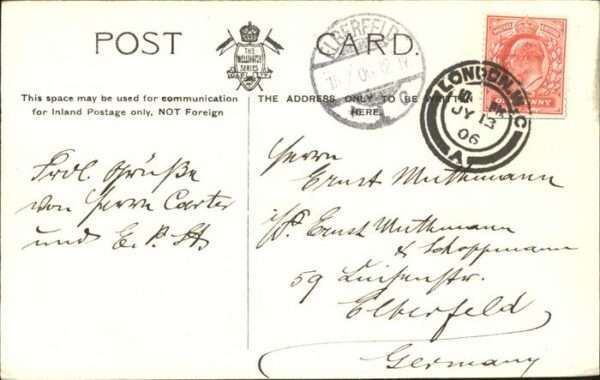 POST CARD.
THE
WELLINGTON
SERIES
This space may be used for communication
for Inland Postage only, NOT Foreign
THE ADDRESS ONLY TO BE WRITTEN
HERE.
ELBERFELD
LONDON. W.C
JY 13
06
ONE PENNY
Frdl. Grüße
von Herrn Carter
und E. P.
Herrn
Ernst Muthmann
Ernst Muthmann
& Schoppmann
59 Luisenstr.
Elberfeld
Germany